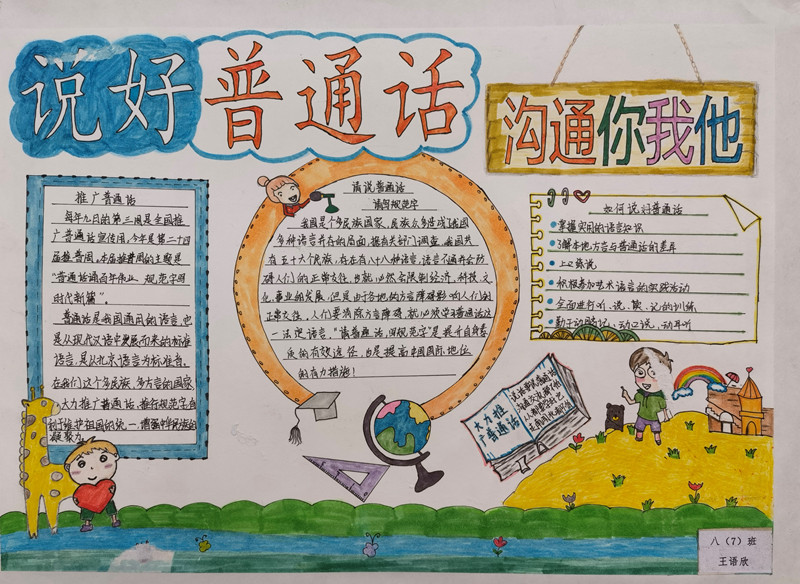 说好普通话
沟通你我他
推广普通话
每年九日的第三周是全国推
广普通话宣传周,今年是第二十四
届推普周,本届推普周的主题是
“普通话诵百年伟业,规范字写
时代新篇”。
普通话是我国通用的语言,也
是从现代汉语中发展而来的标准
语言,是从北京语言为标准音。
在我们这个多民族、多方言的国家
大力推广普通话,推行规范字,有
利于维护祖国的统一,增强中华民族的
凝聚力。
请说普通话
请写规范字
我国是个多民族国家,民族众多造成了我国
多种语言并存的局面,据有关部门调查,我国共
有五十六个民族,存在有八十八种语言,语言不通并会防
碍人们的正常交往,也就必然会限制经济、科技、文
化、事业的发展,但是由于各地的方言障碍影响人们的
正常交往,人们要消除方言障碍,就必须学习普通话这
一法定语言。“请普通话,写规范字”是我们自身素
质的有效途径,也是提高中国国际地位
的有力措施!
如何说好普通话
掌握实用的语言知识
了解本地方言与普通话的差异
上口练说
积极参加艺术语言的实践活动
全面进行听、说、读、记的训练
勤于动脑记、动口说、动耳听
大力推
广普通话
八(7)班
王语欣